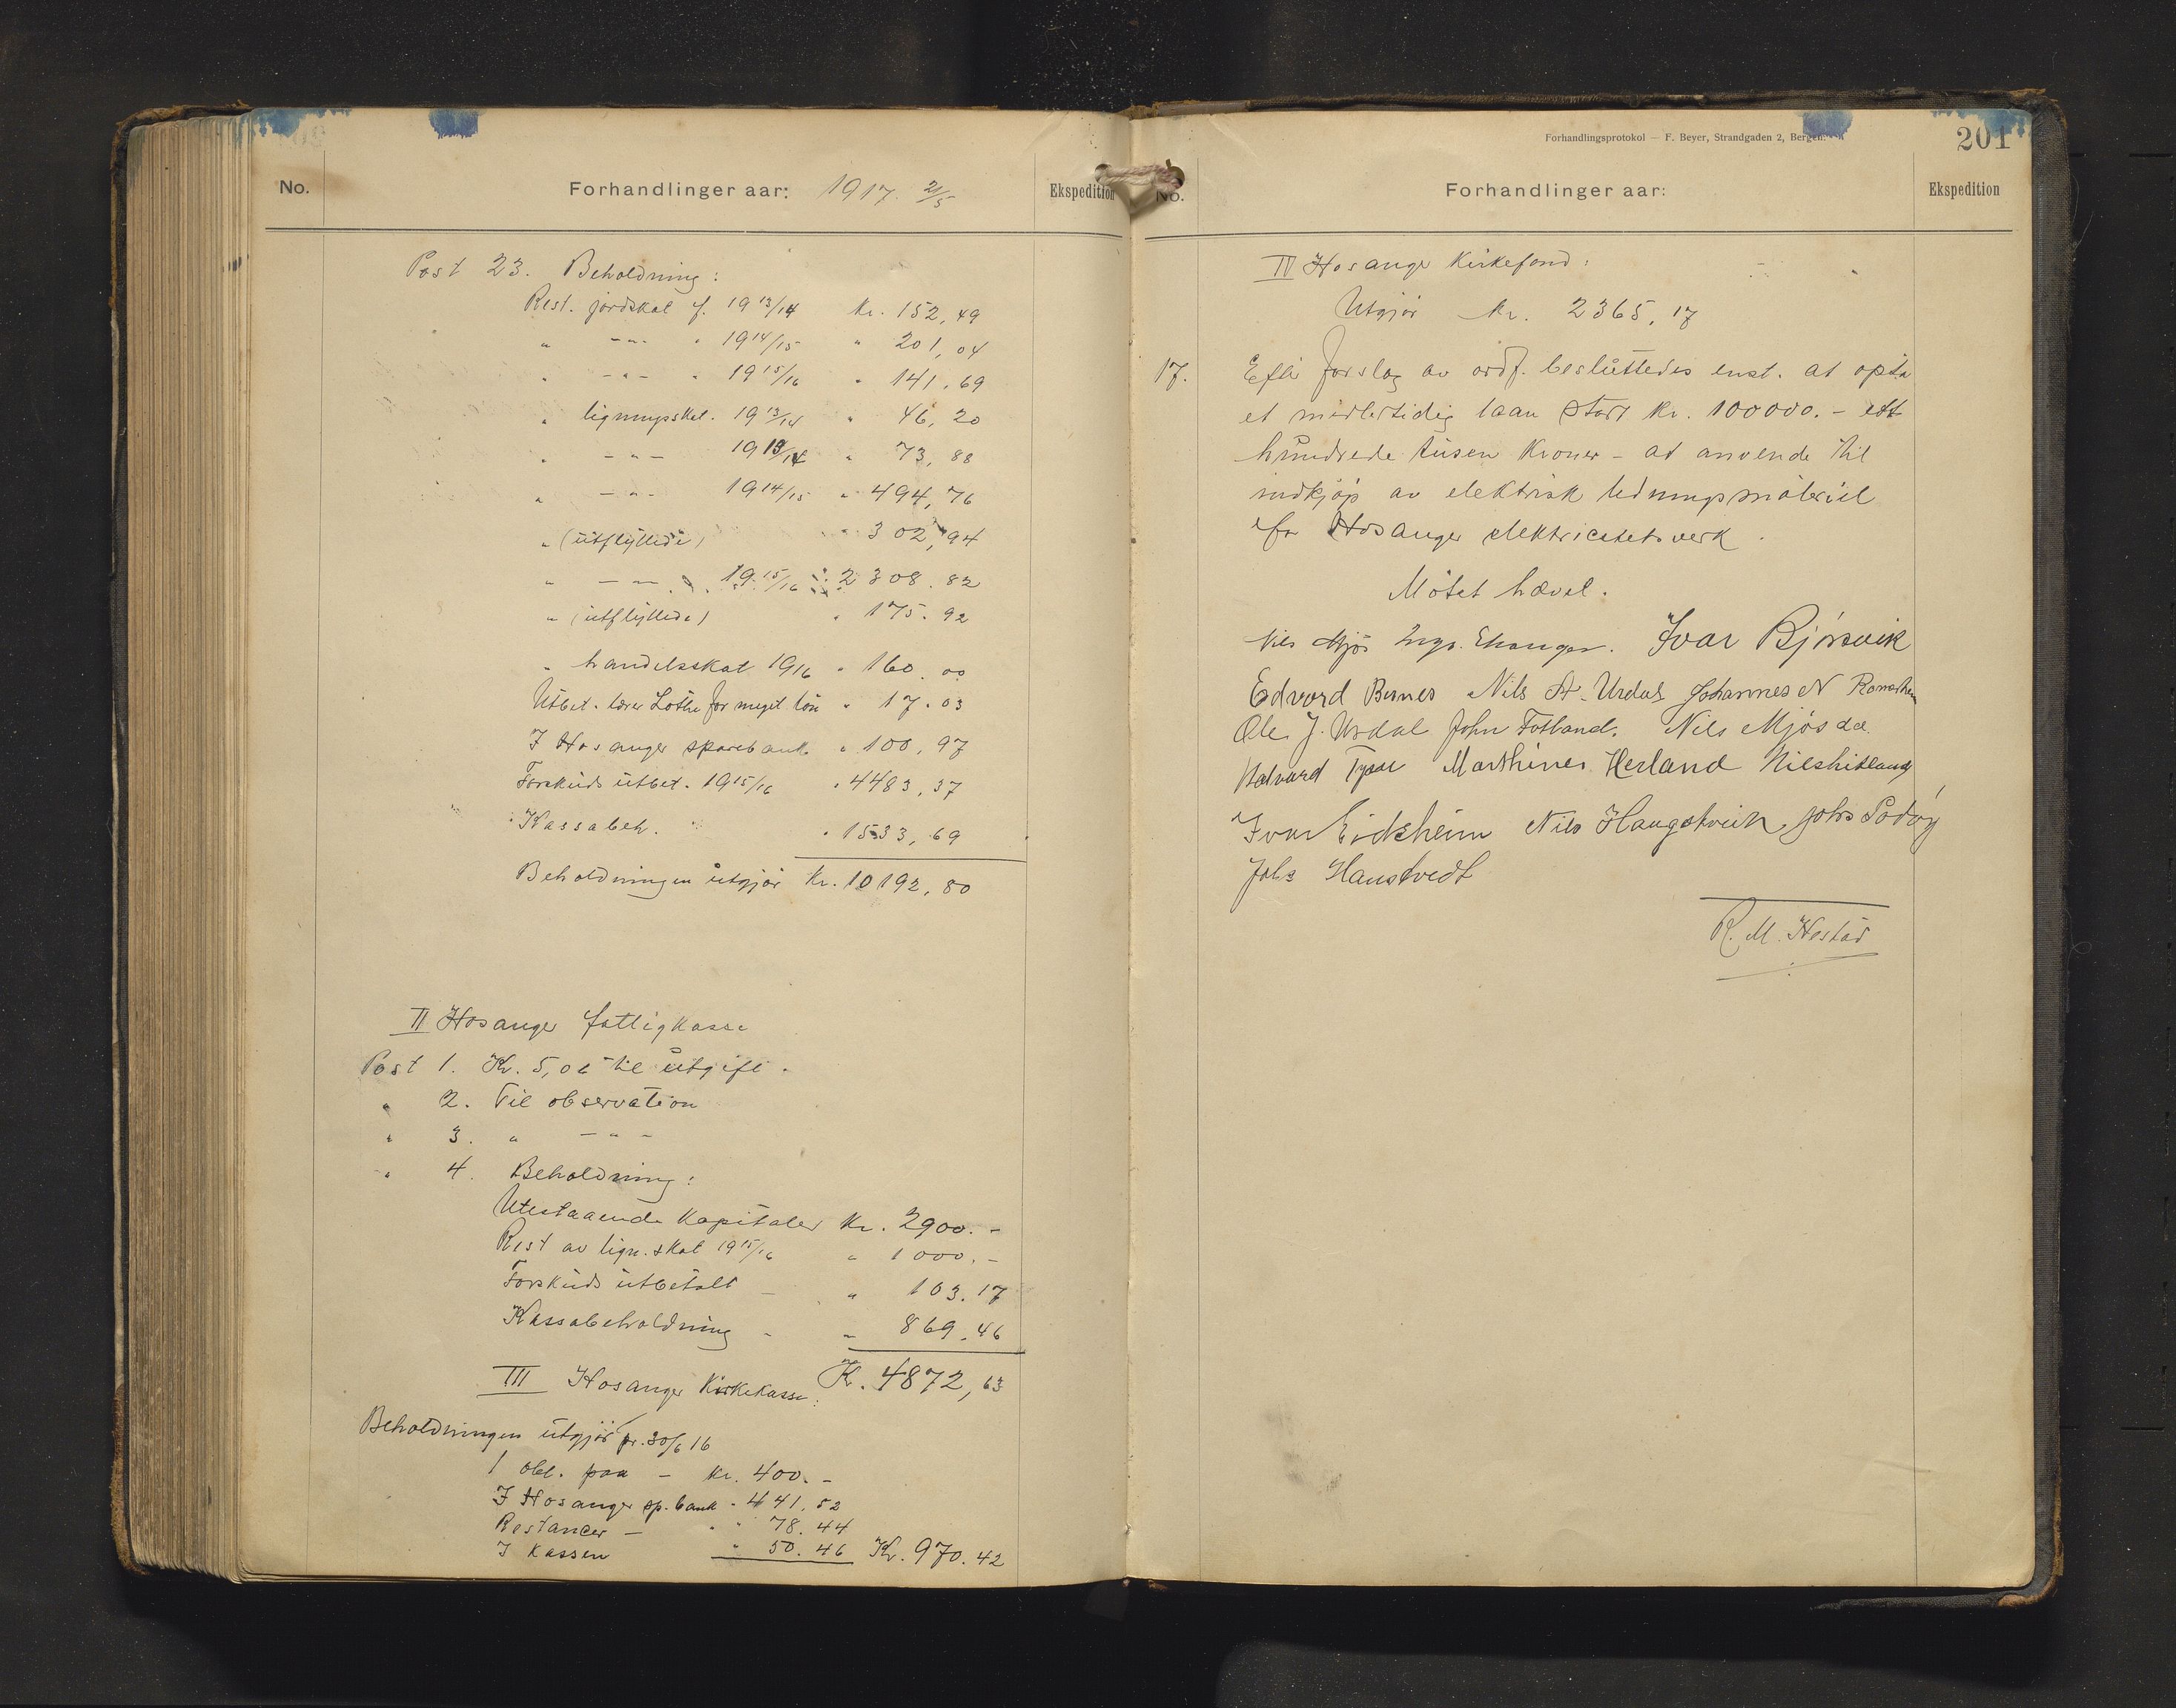 No. Forhandlinger aar: 1917. 2/5 Ekspedition
Post 23. Beholdning:
Rest. jordskat f. 1913/14 Kr. 152,49
" -"- " 1914/15 " 201,04
" -"- " 1915/16 " 141.69
" ligningsskat. 1913/14 " 46,20
" -"- 1913/14 " 73,88
" -"- 1914/15 " 494,76
" (utflyttede) " 302,94
" -"- 1915/16 " 2308.82
" (utflyttede) " 175.92
" handelsskat 1916 " 160.00
Utbet. lærer Lothe for meget løn " 17.03
I Hosanger sparebank " 100,97
Forskuds utbet. 1915/16 " 4483,37
Kassabeh. " 1533,69
Beholdningen utgjør Kr. 10192,80
II Hosanger fattigkasse
Post 1. Kr. 5,06 til utgift.
" 2. Til observation
" 3. " -"-
" 4. Beholdning:
Utestaaende Kapitaler Kr. 2900.-
Rest av lign.skat 1915/16 " 1000.-
Forskuds utbetalt - " 103.17
Kassabeholdning - " 869.46
K. 4872,63
III Hosanger Kirkekasse:
Beholdningen utgjør pr. 30/6 16
1 obl. paa - Kr. 400.-
I Hosanger sp.bank " 441.52
Restancer - " 78.44
I Kassen " 50.46 Kr. 970.42
Forhandlingsprotokol — F. Beyer, Strandgaden 2, Bergen.
201
No. Forhandlinger aar: Ekspedition
IV Hosanger Kirkefond:
Utgjør Kr. 2365,17
17. Efter forslag av ordf. besluttedes enst. at opta
et midlertidig laan stort Kr. 100000.- ett
hundrede tusen Kroner - at anvende til
indkjøp av elektrisk ledningsmateriel
for Hosanger elektricitetsverk.
Møtet hævet.
Nils Mjøs Ingv. Ivar Bjørsvik
Edvard Bernes Nils A. Urdal Johannes N
Ole J. Urdal John Fotland. Nils Mjøsdal
Halvard Tysse Marthines Herland Nils Hitland
Ivar Eidsheim Nils Haugstveit Johs
Johs Haustvedt
R. M. Hestad